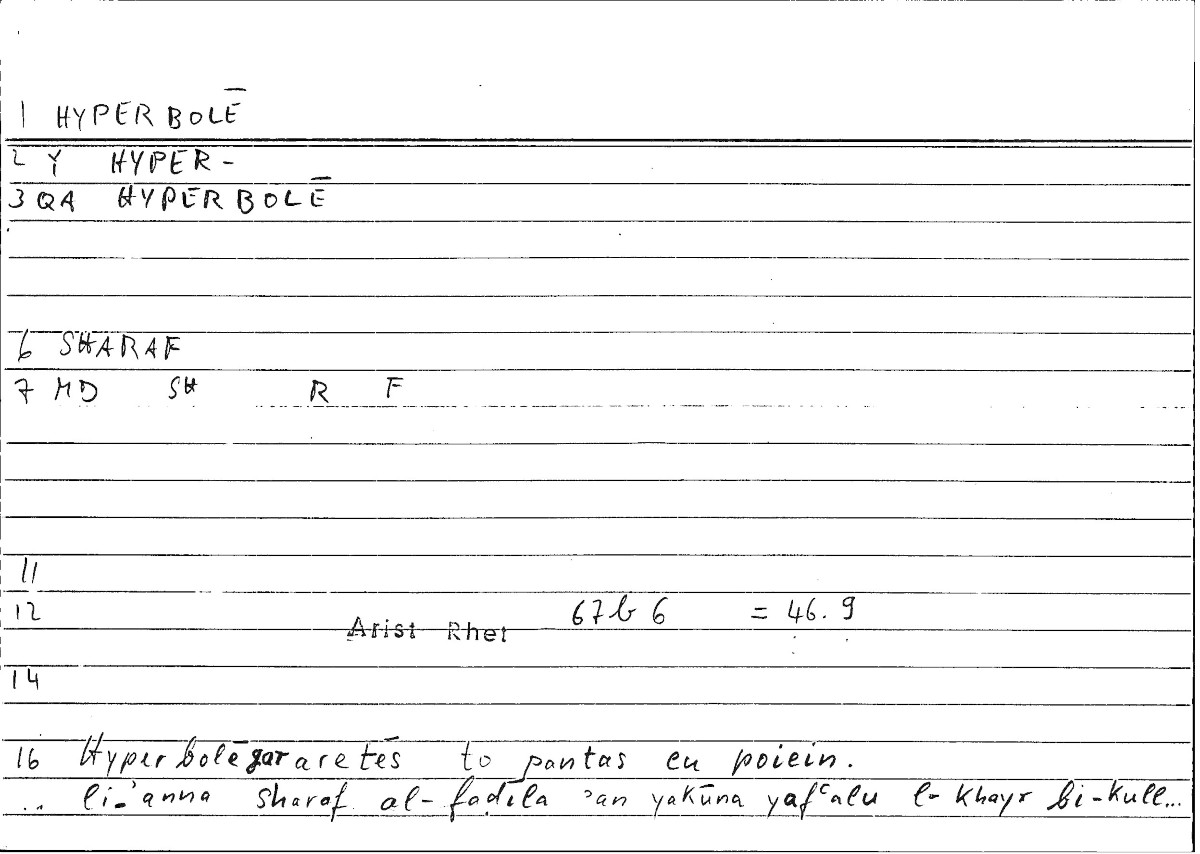 1 HYPERBOLĒ
2 Y HYPER-
3 QA HYPERBOLĒ
6 SHARAF
7 MD SH R F
11
12 67b 6 = 46.9
Arist Rhet
14
16 Hyperbolē gar aretēs to pantas eu poiein.
.. li-ʾanna sharaf al-faḍīla ʾan yakūna yafʿalu l-khayr bi-kull...